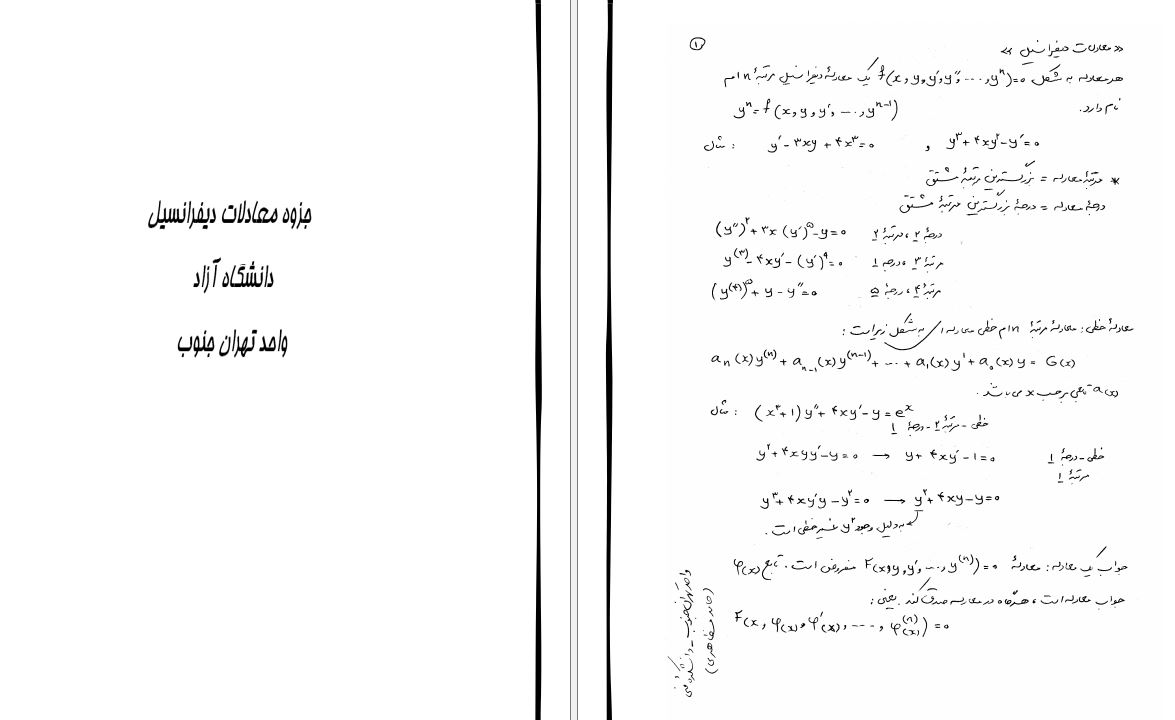 جزوه معادلات دیفرانسیل
دانشگاه آزاد
واحد تهران جنوب
۱
« معادلات دیفرانسیل »
هر معادله به شکل f(x, y, y', y'', ..., yⁿ)=۰ یک معادلهٔ دیفرانسیل مرتبهٔ n ام
نام دارد.
yⁿ = f(x, y, y', ..., yⁿ⁻¹)
مثال : y' - ۳xy + ۴x³ = ۰ , y³ + ۴xy² - y' = ۰
* مرتبهٔ معادله = بزرگسترین مرتبهٔ مشتق
درجهٔ معادله = درجهٔ بزرگسترین مرتبهٔ مشتق
(y'')² + ۳x (y')⁵ - y = ۰ درجهٔ ۲ ، مرتبهٔ ۲
y⁽³⁾ - ۴xy' - (y')⁹ = ۰ مرتبهٔ ۳ ، درجهٔ ۱
(y⁽⁴⁾)⁵ + y - y'' = ۰ مرتبهٔ ۴ ، درجهٔ ۵
معادلهٔ خطی : معادلهٔ مرتبهٔ n ام خطی معادله ای به شکل زیر است :
aₙ(x) y⁽ⁿ⁾ + aₙ₋₁(x) y⁽ⁿ⁻¹⁾ + ... + a₁(x) y' + a₀(x) y = G(x)
a(x) تابعی بر حسب x می باشد.
مثال : (x³+1) y'' + ۴xy' - y = eˣ
خطی - مرتبهٔ ۲ - درجهٔ ۱
y² + ۴xyy' - y = ۰ → y + ۴xy' - 1 = ۰ خطی - درجهٔ ۱
مرتبهٔ ۱
y³ + ۴xy'y - y² = ۰ → y² + ۴xy - y = ۰
به دلیل وجود y² غیر خطی است.
جواب یک معادله : معادلهٔ F(x, y, y', ..., y⁽ⁿ⁾) = ۰ مفروض است . تابع φ(x)
جواب معادله است ، هرگاه در معادله صدق کند . یعنی :
F(x, φ(x), φ'(x), ..., φ⁽ⁿ⁾(x)) = ۰
واحد تهران جنوب - دانشکده فنی